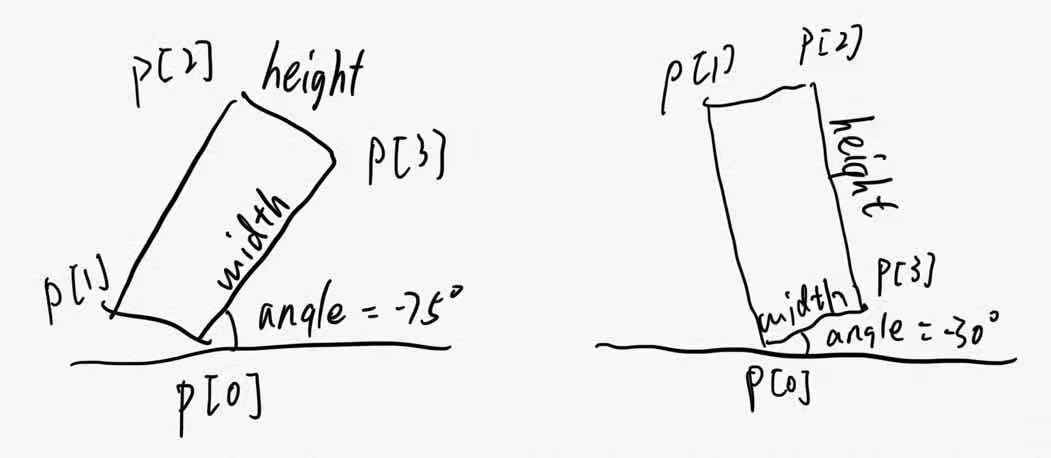 p[2] height
p[3]
width
p[1]
angle = -75°
p[0]
p[1] p[2]
height
p[3]
width
angle = -30°
p[0]